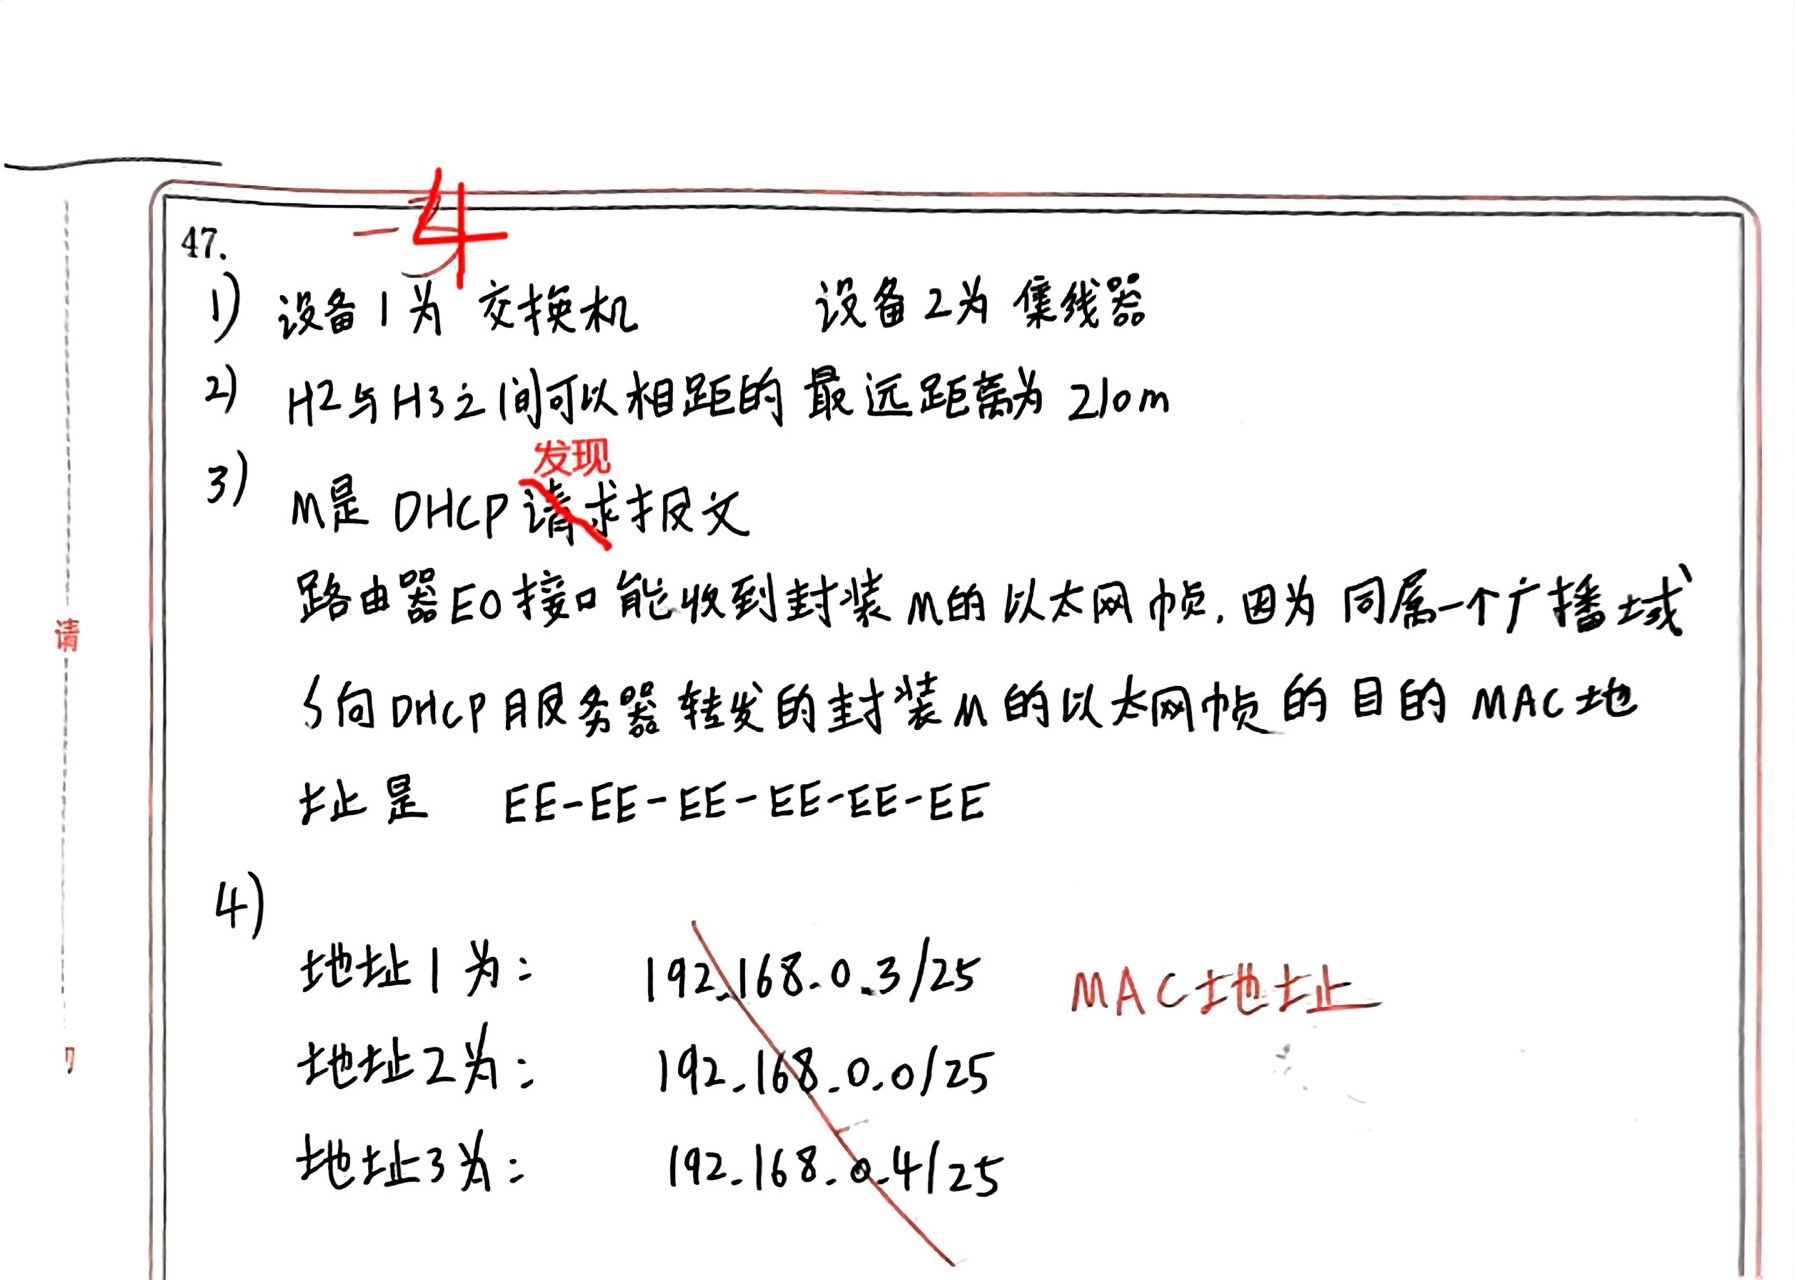 -4
47.
1) 设备1为 交换机 设备2为 集线器
2) H2与H3之间可以相距的最远距离为 210m
发现
3) M是 DHCP 请求报文
路由器E0接口能收到封装M的以太网帧, 因为同属一个广播域
向DHCP服务器转发的封装M的以太网帧的目的MAC地
址是 EE-EE-EE-EE-EE-EE
请
4)
地址1为: 192.168.0.3/25 MAC地址
地址2为: 192.168.0.0/25
地址3为: 192.168.0.4/25